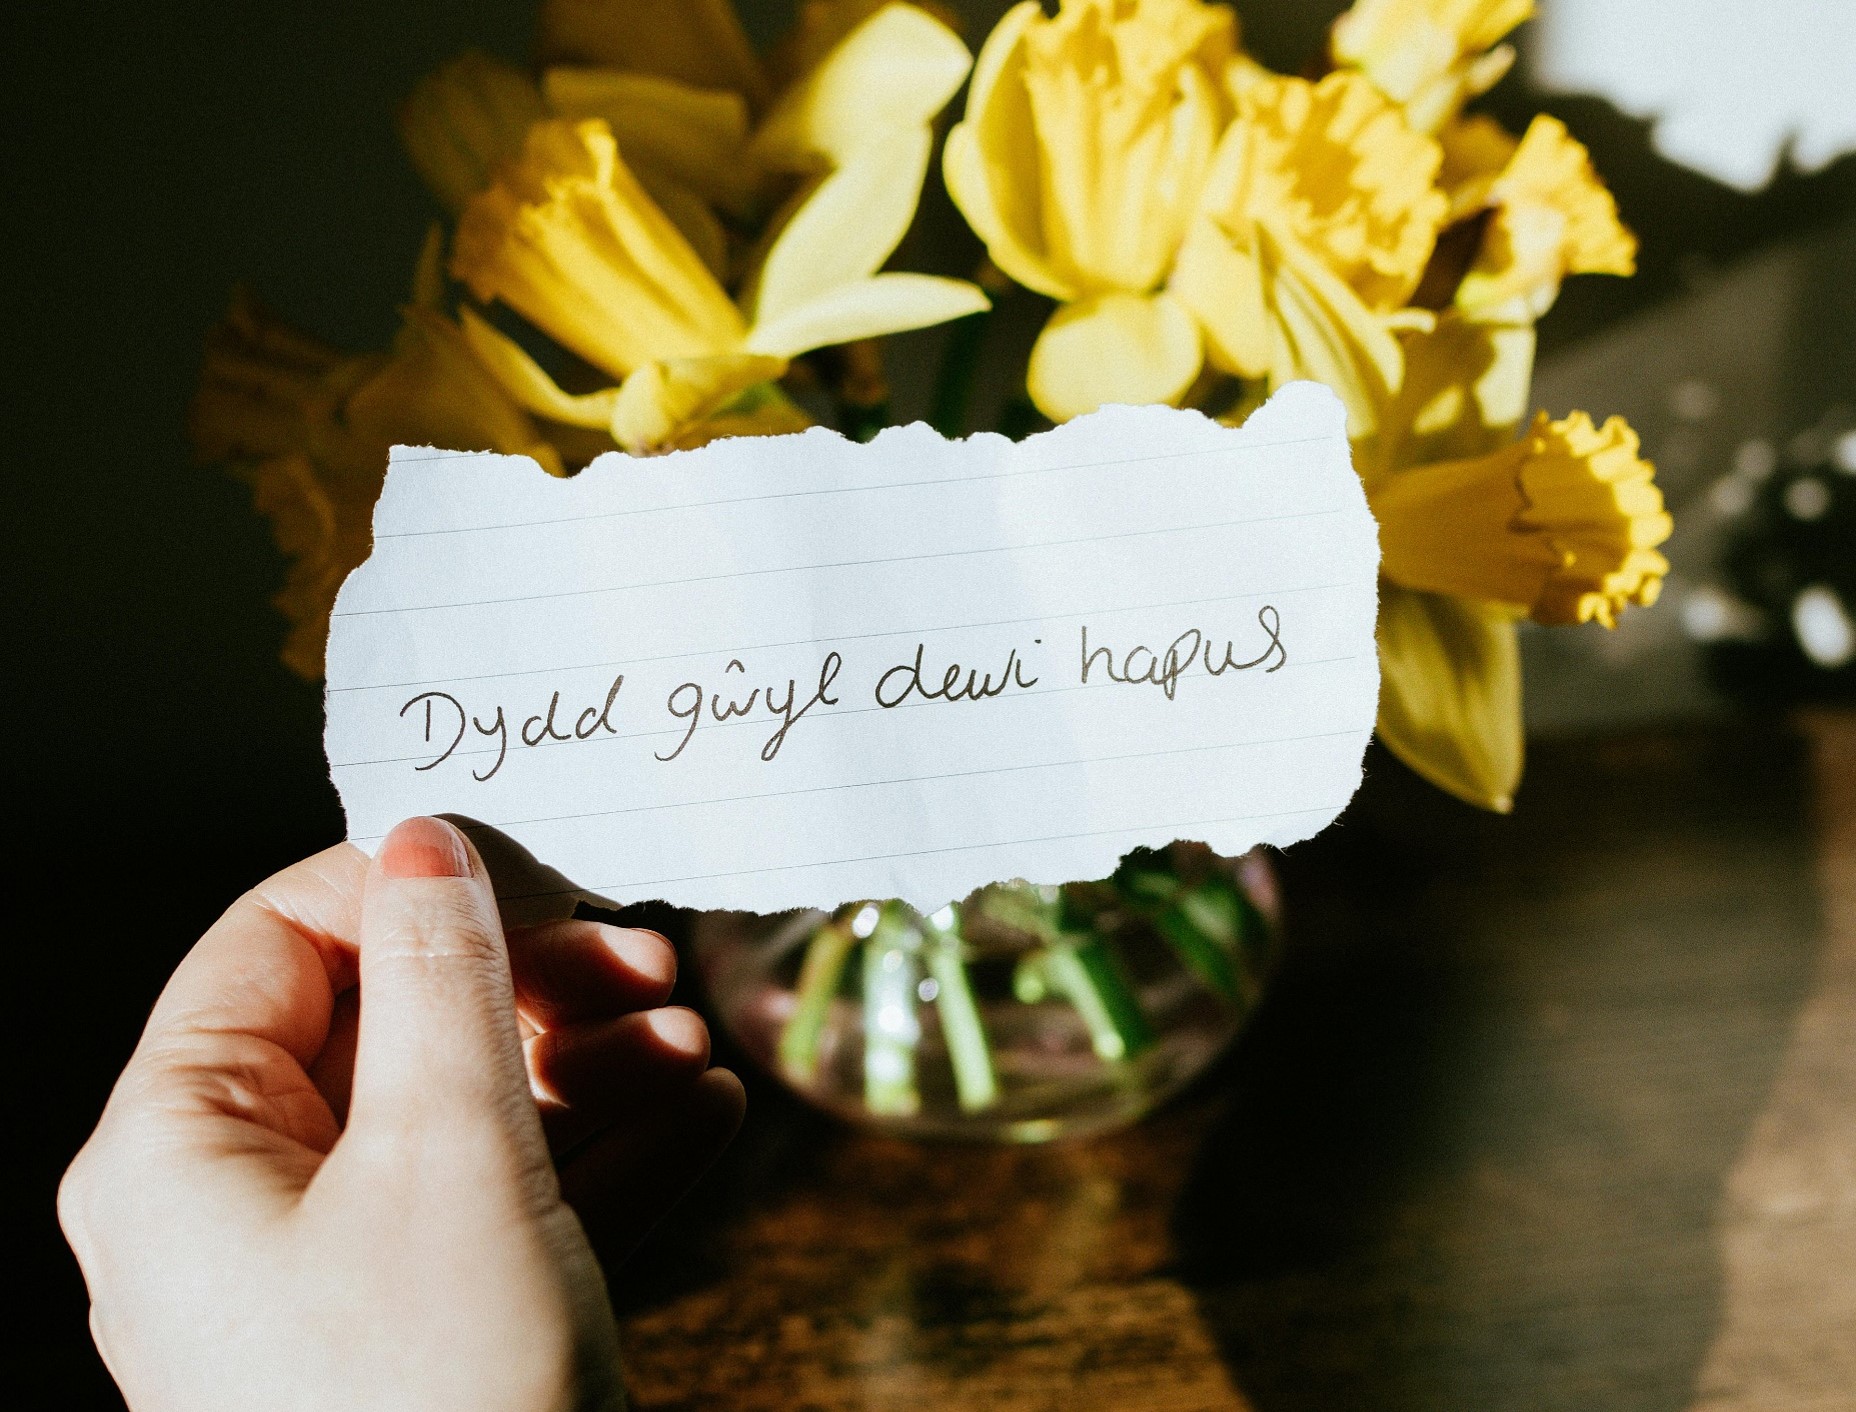 Dydd gŵyl dewi hapus